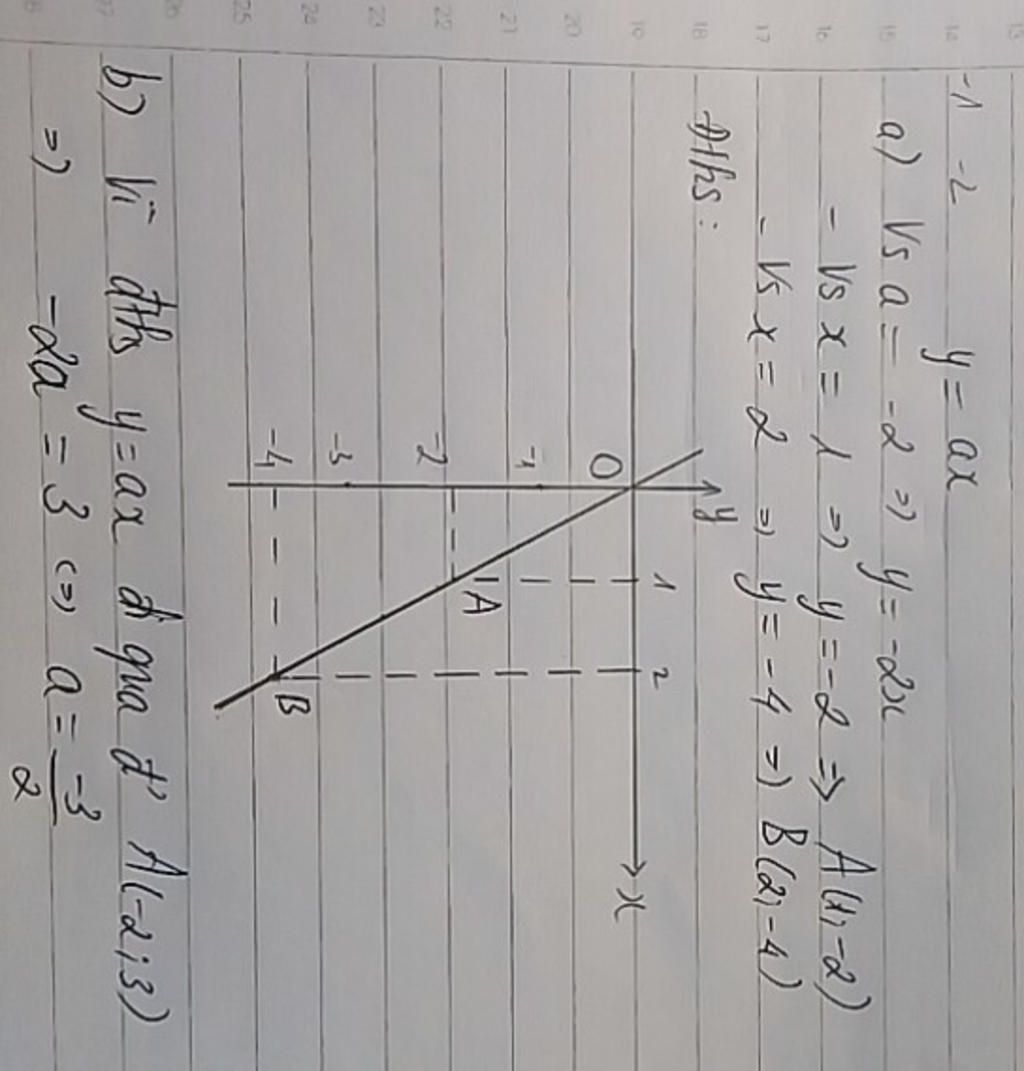 13 14 15 16 17 18 19 20 21 22 23 24 25 26 27
-1 -2 y = ax
a) Vs a = -2 => y = -2x
- Vs x = 1 => y = -2 => A(1, -2)
- Vs x = 2 => y = -4 => B(2, -4)
Đths:
y
O 1 2 x
-1
A
-2
-3
-4
B
b) Vì đths y = ax đi qua đ' A(-2; 3)
=> -2a = 3 <=> a = -3/2